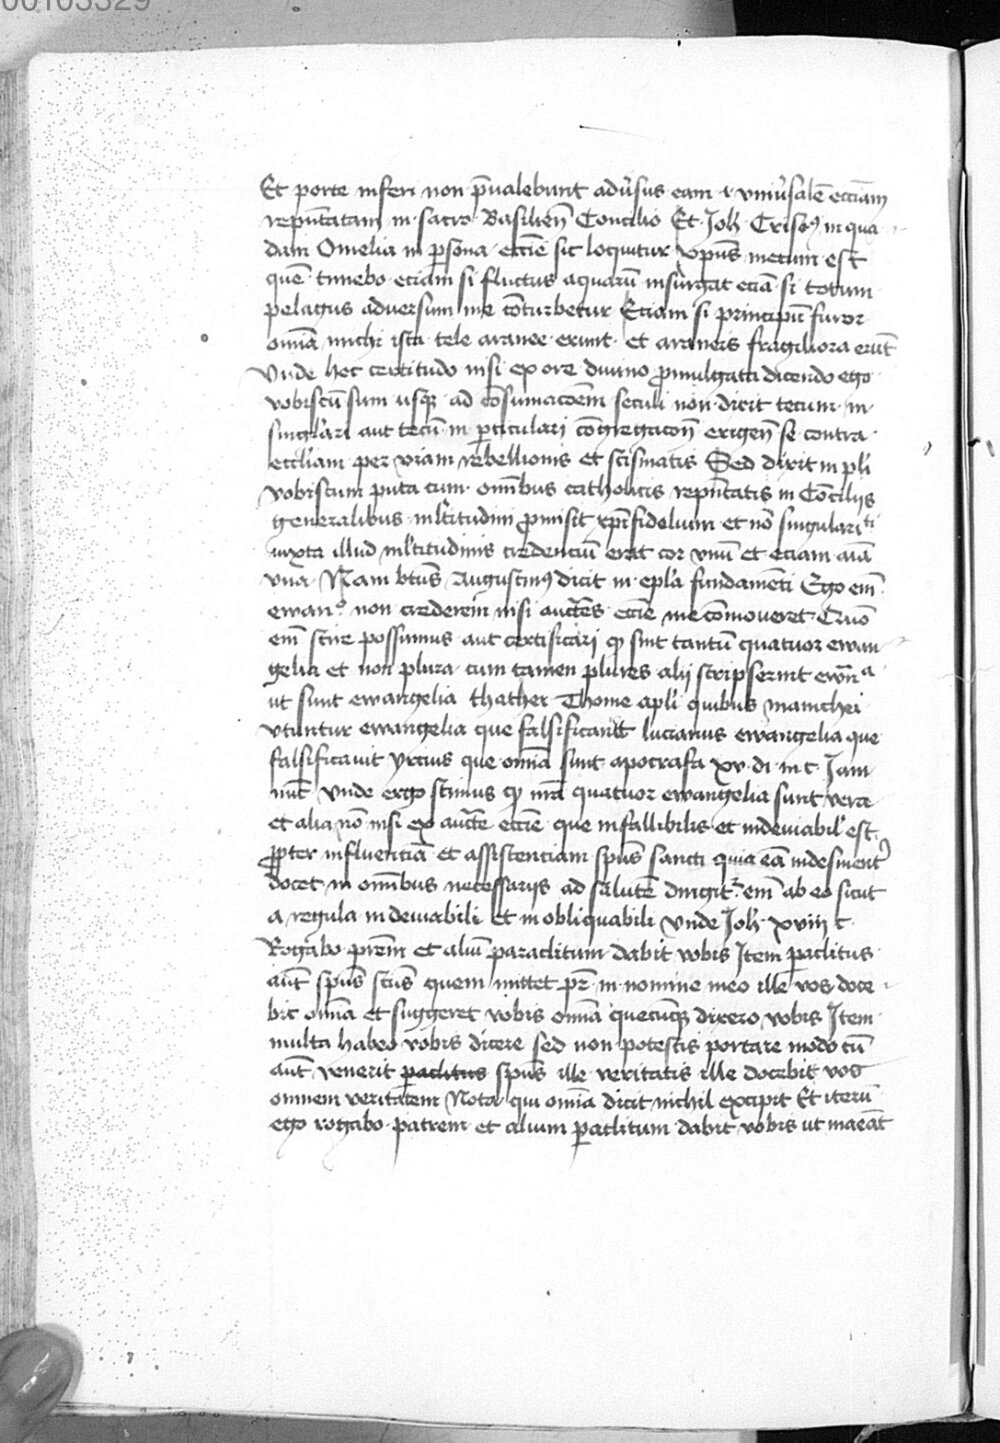 00103329
Et porte inferi non p̄ualebunt adu̓sus eam ⁊ vniu̓salē eccīam
rep̄ntatam in sacro Basilien̄ Concilio Et Joh̄ Crisoꝰ in qua
dam Omelia in ꝑsona eccīe sic loquitur xp̄us metum est
quē timebo etiam si fluctus aquarū insurgat eciā si totum
pelagus adversum me cōturbetur Etiam si principū furor
omīa michi ista tele aranee erunt et araneis fragiliora erūt
Vnde hec certitudo nisi ex ore diuino ꝓmulgata dicendo ego
vobiscū sum usqꝫ ad cōsumacōem seculi non dicit tecum in
singulari aut tecū in ꝑticulari cōgregacōn̄ erigen̄ se contra
eccl̄iam per viam rebellionis et scismatis Sed dixit in pl̄i
vobiscum puta cum omībus catholicis rep̄ntatis in Cōciliis
generalibus ml̄titudini ꝓmisit xp̄ifidelium et nō singulari ti
iuxta illud ml̄titudinis credenciū erat cor vnū et eciam aīa
vna Nam btūs Augustinꝰ dicit in epl̄a fundamēti Ego em̄
ewanꝰ non crederem nisi auctēs eccīe me cōmoveret Quō
em̄ scire possumus aut certificari ꝙ sint tantū quatuor ewan
gelia et non plura cum tamen plures alij scripserint ewn̄ª
ut sunt ewangelia thather Thome apl̄i quibus manichei
vtuntur ewangelia que falsificavit lucianus ewangelia que
falsificavit yrcius que omīa sunt apocrafa xv di in c Jam
nūc vnde ergo scimus ꝙ nr̄a quatuor ewangelia sunt vera
et alia nō nisi ex aucte eccīe que infallibilis et indeviabil̓ est
ꝓpter influentiā et assistentiam spūs sancti quia eā indesinent̓
docet in omībus necessarijs ad salutē dirigit᷑ em̄ ab eo sicut
a regula indeviabili et inobliquabili vnde Joh̄ xviij c
Rogabo pr̄em et aliū paraclitum dabit vobis Item ꝑaclitus
aūt spūs scūs quem mittet pr̄ in nomine meo ille vos doce
bit omīa et suggeret vobis omīa quecūqꝫ dixero vobis Item
multa habeo vobis dicere sed non potestis portare modo cū
aūt venerit ꝑaclitus spūs ille veritatis ille docebit vos
omnem veritatem Nota qui omīa dicit nichil excipit Et iterū
ego rogabo patrem et alium ꝑaclitum dabit vobis ut maneāt